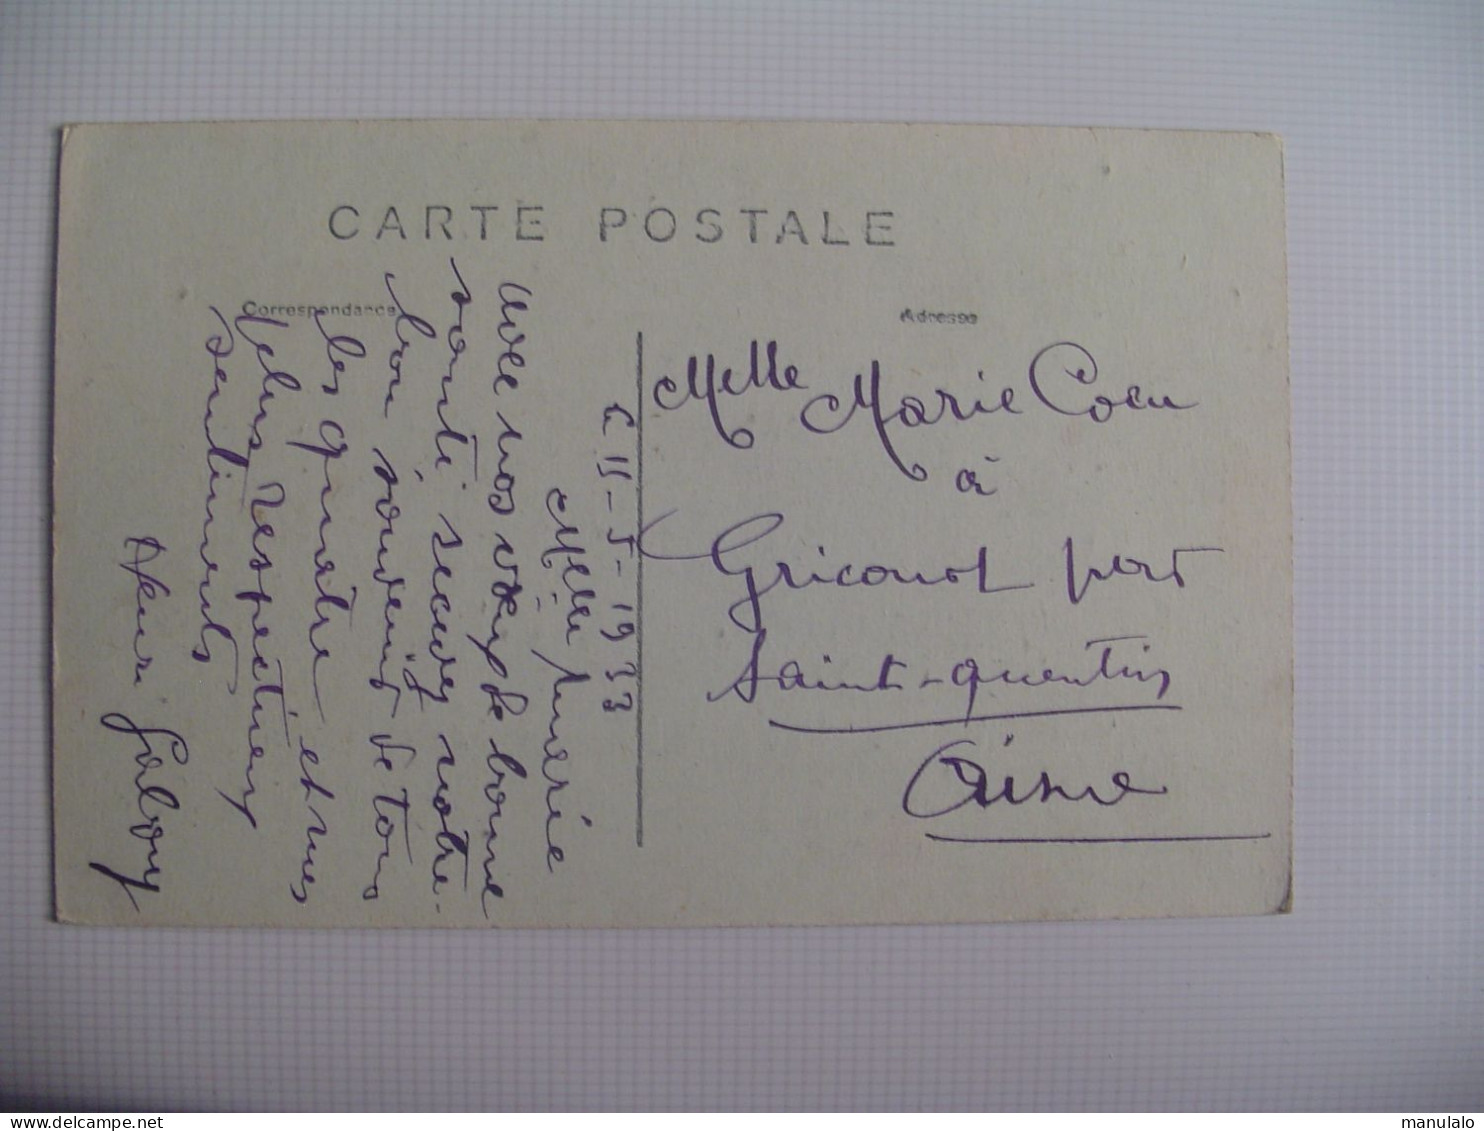 CARTE POSTALE
Correspondance
Adresse
Le 11-5-1933
Melle Marie
Avec nos vœux de bonne
santé recevez notre
bon souvenir de tous
les quatre et mes
plus respectueux
sentiments
Henri
Melle Marie Coeu
à
Gricourt par
Saint-quentin
Aisne
manulalo